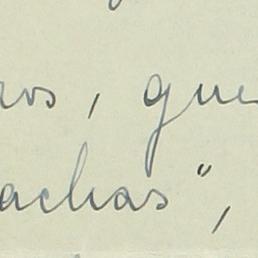 ros, que
achas",